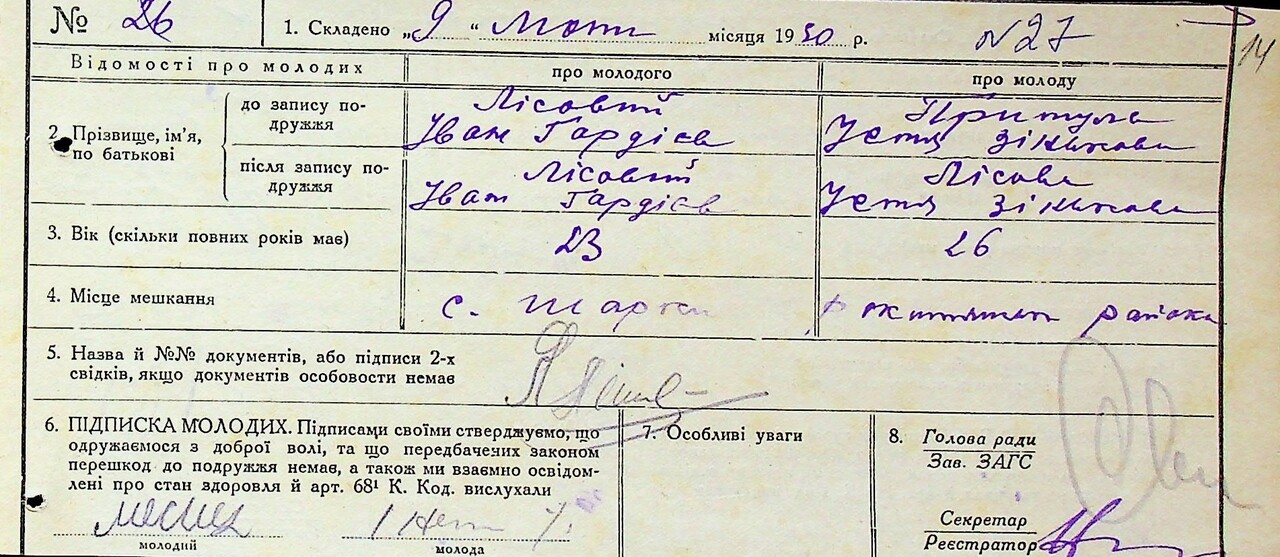 № 26 1. Складено „9" Лютий місяця 1930 р. N27
14
Відомості про молодих про молодого про молоду
2. Прізвище, ім'я, по батькові
до запису подружжя
Лісовий
Іван Гардієв
Притула
Устя Зінькова
після запису подружжя
Лісовий
Іван Гардієв
Лісова
Устя Зінькова
3. Вік (скільки повних років має) 23 26
4. Місце мешкання с. району
5. Назва й №№ документів, або підписи 2-х
свідків, якщо документів особовости немає
6. ПІДПИСКА МОЛОДИХ. Підписами своїми стверджуємо, що
одружаємося з доброї волі, та що передбачених законом
перешкод до подружжя немає, а також ми взаємно освідом-
лені про стан здоровля й арт. 68¹ К. Код. вислухали
молодий молода
7. Особливі уваги
8. Голова ради
Зав. ЗАГС
Секретар
Реєстратор